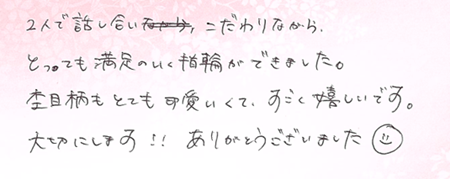 2人で話し合いながら、こだわりながら、
とっても満足のいく指輪ができました。
杢目柄もとても可愛いくて、すごく嬉しいです。
大切にします!! ありがとうございました